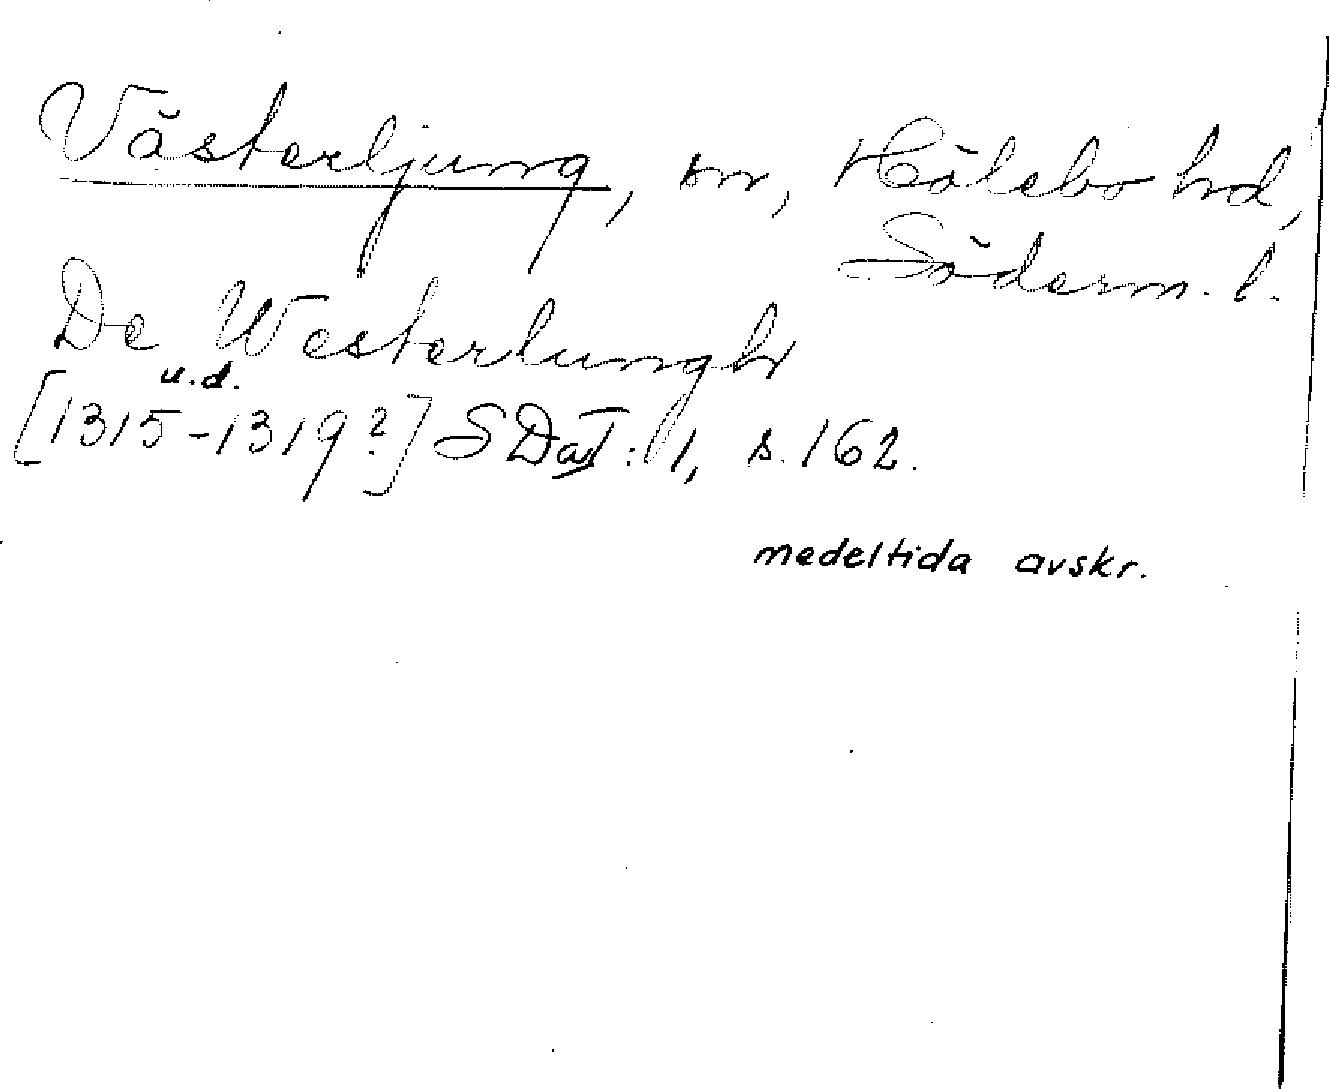 Västerljung, sn, Hölebo hd,
Söderm. l.
De Westerlungh
u.d.
[1315-1319?] SDaT: 1, s. 162.
medeltida avskr.